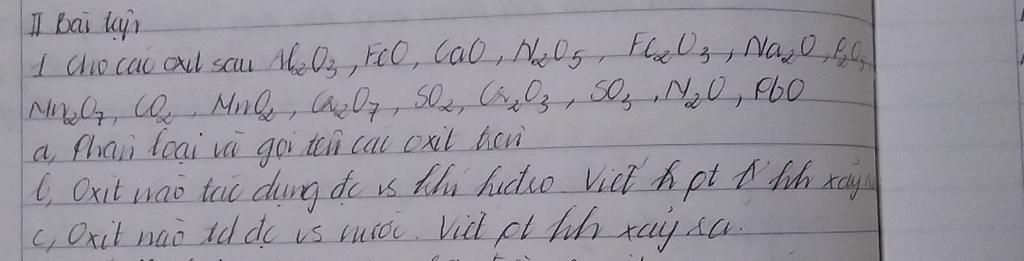 II Bài tập
1 Cho các oxit sau Al₂O₃, FeO, CaO, N₂O₅, Fe₂O₃, Na₂O, P₂O₅
Mn₂O₇, CO₂, MnO₂, Cl₂O₇, SO₂, Cr₂O₃, SO₃, N₂O, PbO
a, Phân loại và gọi tên các oxit trên
b, Oxit nào tác dụng đc vs khí hiđro Viết pt hh xảy
c, Oxit nào td đc vs nước. Viết pt hh xảy ra.